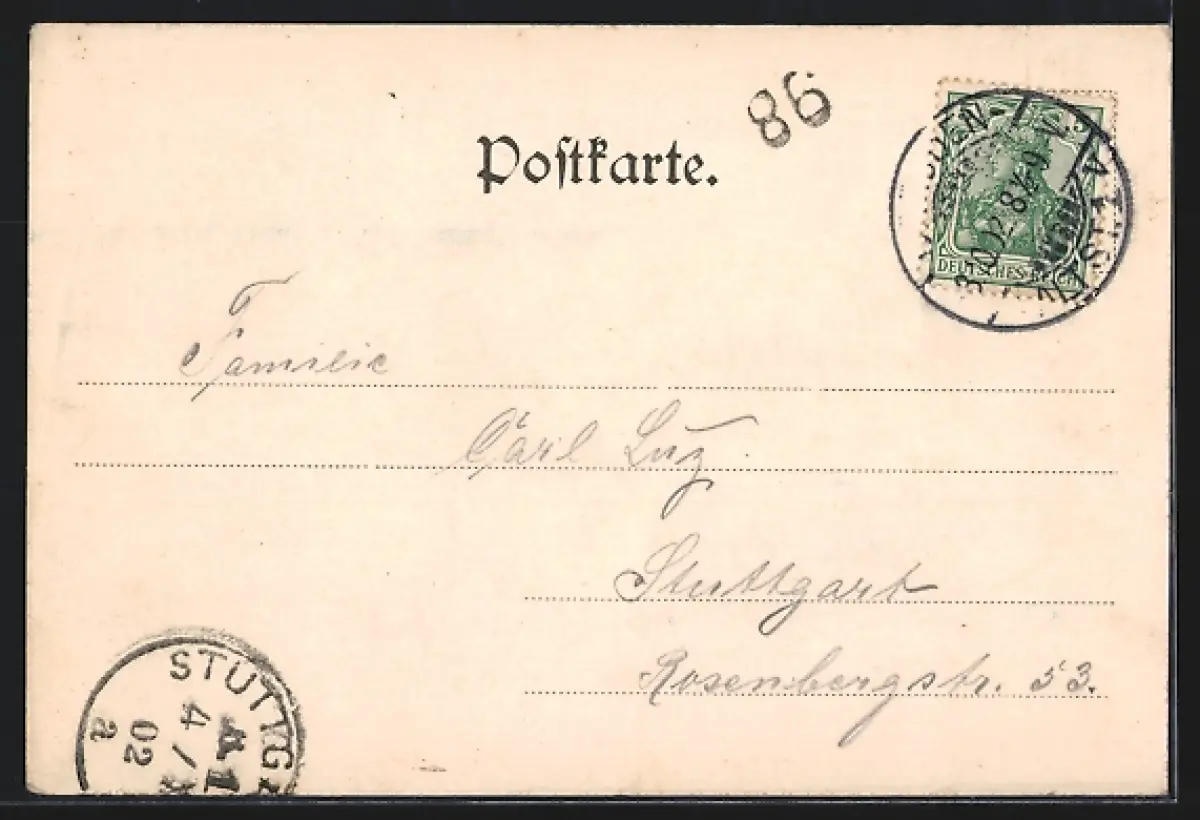 86
Postkarte.
5
DEUTSCHES REICH
3 10 02 8
Familie
Carl Luz.
Stuttgart
Rosenbergstr. 53.
STUTTG
A1
4/X
02
a